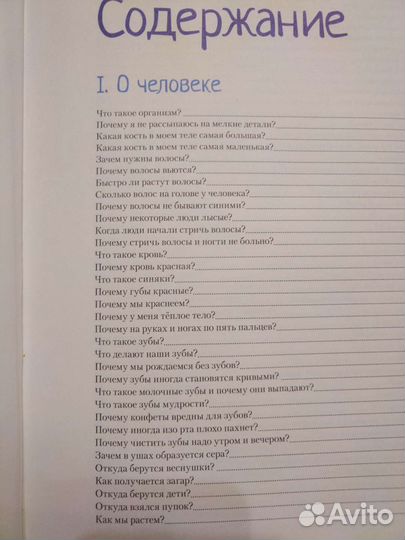 Содержание
I. О человеке
Что такое организм?
Почему я не рассыпаюсь на мелкие детали?
Какая кость в моем теле самая большая?
Какая кость в моем теле самая маленькая?
Зачем нужны волосы?
Почему волосы вьются?
Быстро ли растут волосы?
Сколько волос на голове у человека?
Почему волосы не бывают синими?
Почему некоторые люди лысые?
Когда люди начали стричь волосы?
Почему стричь волосы и ногти не больно?
Что такое кровь?
Почему кровь красная?
Что такое синяки?
Почему губы красные?
Почему мы краснеем?
Почему у меня тёплое тело?
Почему на руках и ногах по пять пальцев?
Что такое зубы?
Что делают наши зубы?
Почему мы рождаемся без зубов?
Почему зубы иногда становятся кривыми?
Что такое молочные зубы и почему они выпадают?
Что такое зубы мудрости?
Почему конфеты вредны для зубов?
Почему иногда изо рта плохо пахнет?
Почему чистить зубы надо утром и вечером?
Зачем в ушах образуется сера?
Откуда берутся веснушки?
Как получается загар?
Откуда берутся дети?
Откуда взялся пупок?
Как мы растем?
Avito